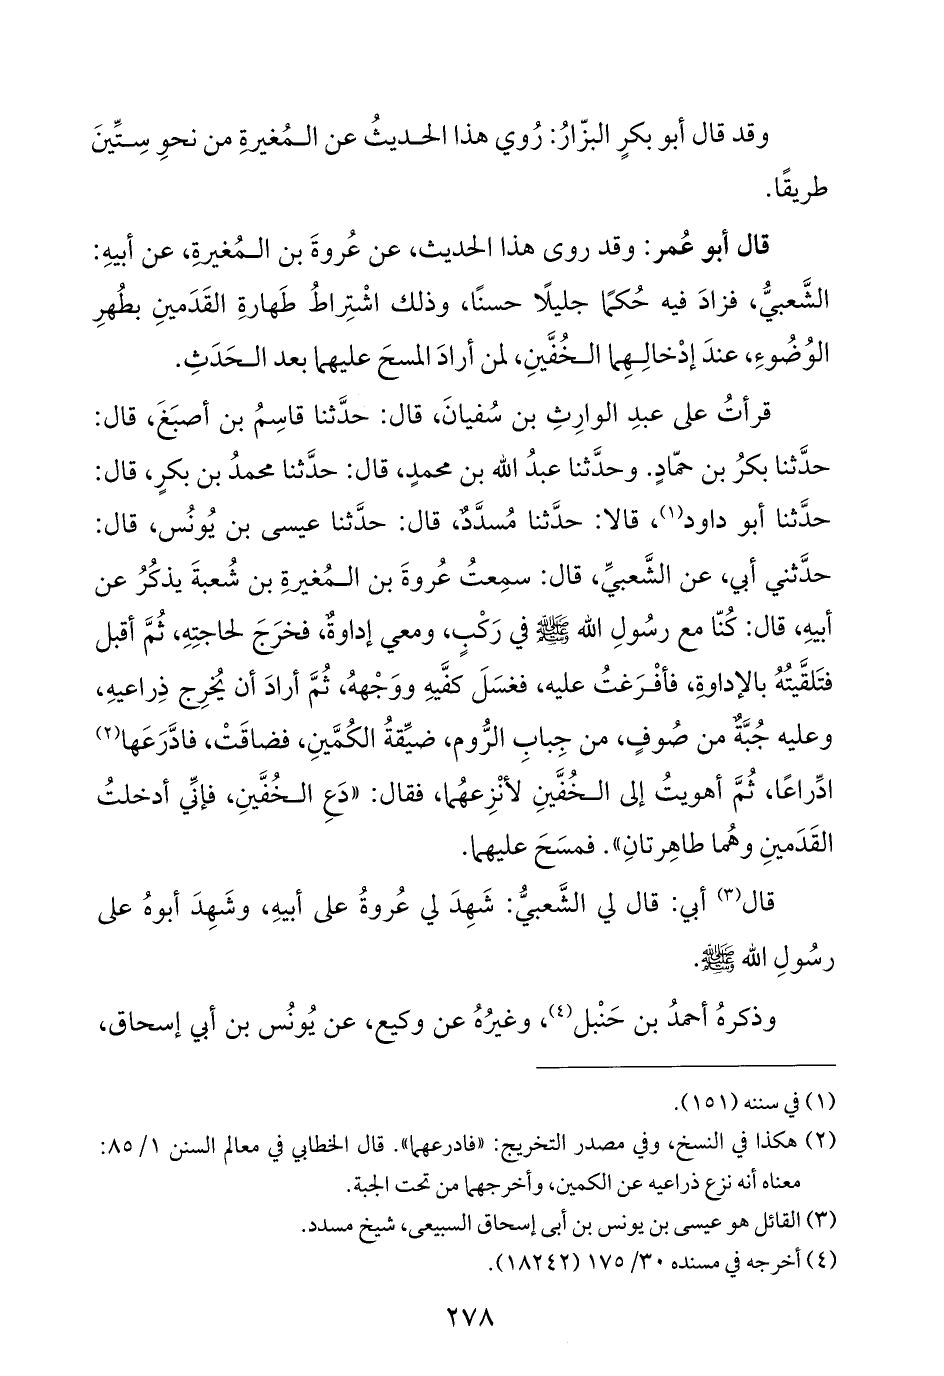 وقد قال أبو بكرٍ البزّارُ: رُوي هذا الحديثُ عن المُغيرةِ من نحوِ سِتِّينَ
طريقًا.
قال أبو عُمر: وقد روى هذا الحديث، عن عُروةَ بن المُغيرةِ، عن أبيهِ:
الشَّعبيُّ، فزادَ فيه حُكمًا جليلًا حسنًا، وذلك اشْتِراطُ طَهارةِ القَدَمينِ بطُهرِ
الوُضُوءِ، عندَ إدْخالِهِما الخُفَّينِ، لمن أرادَ المسحَ عليهما بعد الحَدَثِ.
قرأتُ على عبدِ الوارِثِ بن سُفيانَ، قال: حدَّثنا قاسِمُ بن أصبَغَ، قال:
حدَّثنا بكرُ بن حمّادٍ. وحدَّثنا عبدُ الله بن محمدٍ، قال: حدَّثنا محمدُ بن بكرٍ، قال:
حدَّثنا أبو داود(١)، قالا: حدَّثنا مُسدَّدٌ، قال: حدَّثنا عيسى بن يُونُس، قال:
حدَّثني أبي، عن الشَّعبيِّ، قال: سمِعتُ عُروةَ بن المُغيرةِ بن شُعبةَ يذكُرُ عن
أبيهِ، قال: كُنّا مع رسُولِ الله ﷺ في رَكْبٍ، ومعي إداوةٌ، فخرَجَ لحاجتِهِ، ثُمَّ أقبل
فتَلقَّيتُهُ بالإداوةِ، فأفْرَغتُ عليه، فغسَلَ كفَّيهِ ووَجْههُ، ثُمَّ أرادَ أن يُخرِج ذِراعيهِ،
وعليه جُبَّةٌ من صُوفٍ، من جِبابِ الرُّوم، ضيِّقةُ الكُمَّينِ، فضاقَتْ، فادَّرَعَها(٢)
ادِّراعًا، ثُمَّ أهويتُ إلى الخُفَّينِ لأنْزِعهُما، فقال: «دَعِ الخُفَّينِ، فإنِّي أدخلتُ
القَدَمينِ وهُما طاهِرتانِ». فمسَحَ عليهما.
قال(٣) أبي: قال لي الشَّعبيُّ: شَهِدَ لي عُروةُ على أبيهِ، وشَهِدَ أبوهُ على
رسُولِ الله ﷺ.
وذكرهُ أحمدُ بن حَنْبل(٤)، وغيرُهُ عن وكيع، عن يُونُس بن أبي إسحاق،
(١) في سننه (١٥١).
(٢) هكذا في النسخ، وفي مصدر التخريج: «فادرعهما». قال الخطابي في معالم السنن ١/ ٨٥:
معناه أنه نزع ذراعيه عن الكمين، وأخرجهما من تحت الجبة.
(٣) القائل هو عيسى بن يونس بن أبي إسحاق السبيعي، شيخ مسدد.
(٤) أخرجه في مسنده ٣٠/ ١٧٥ (١٨٢٤٢).
٢٧٨